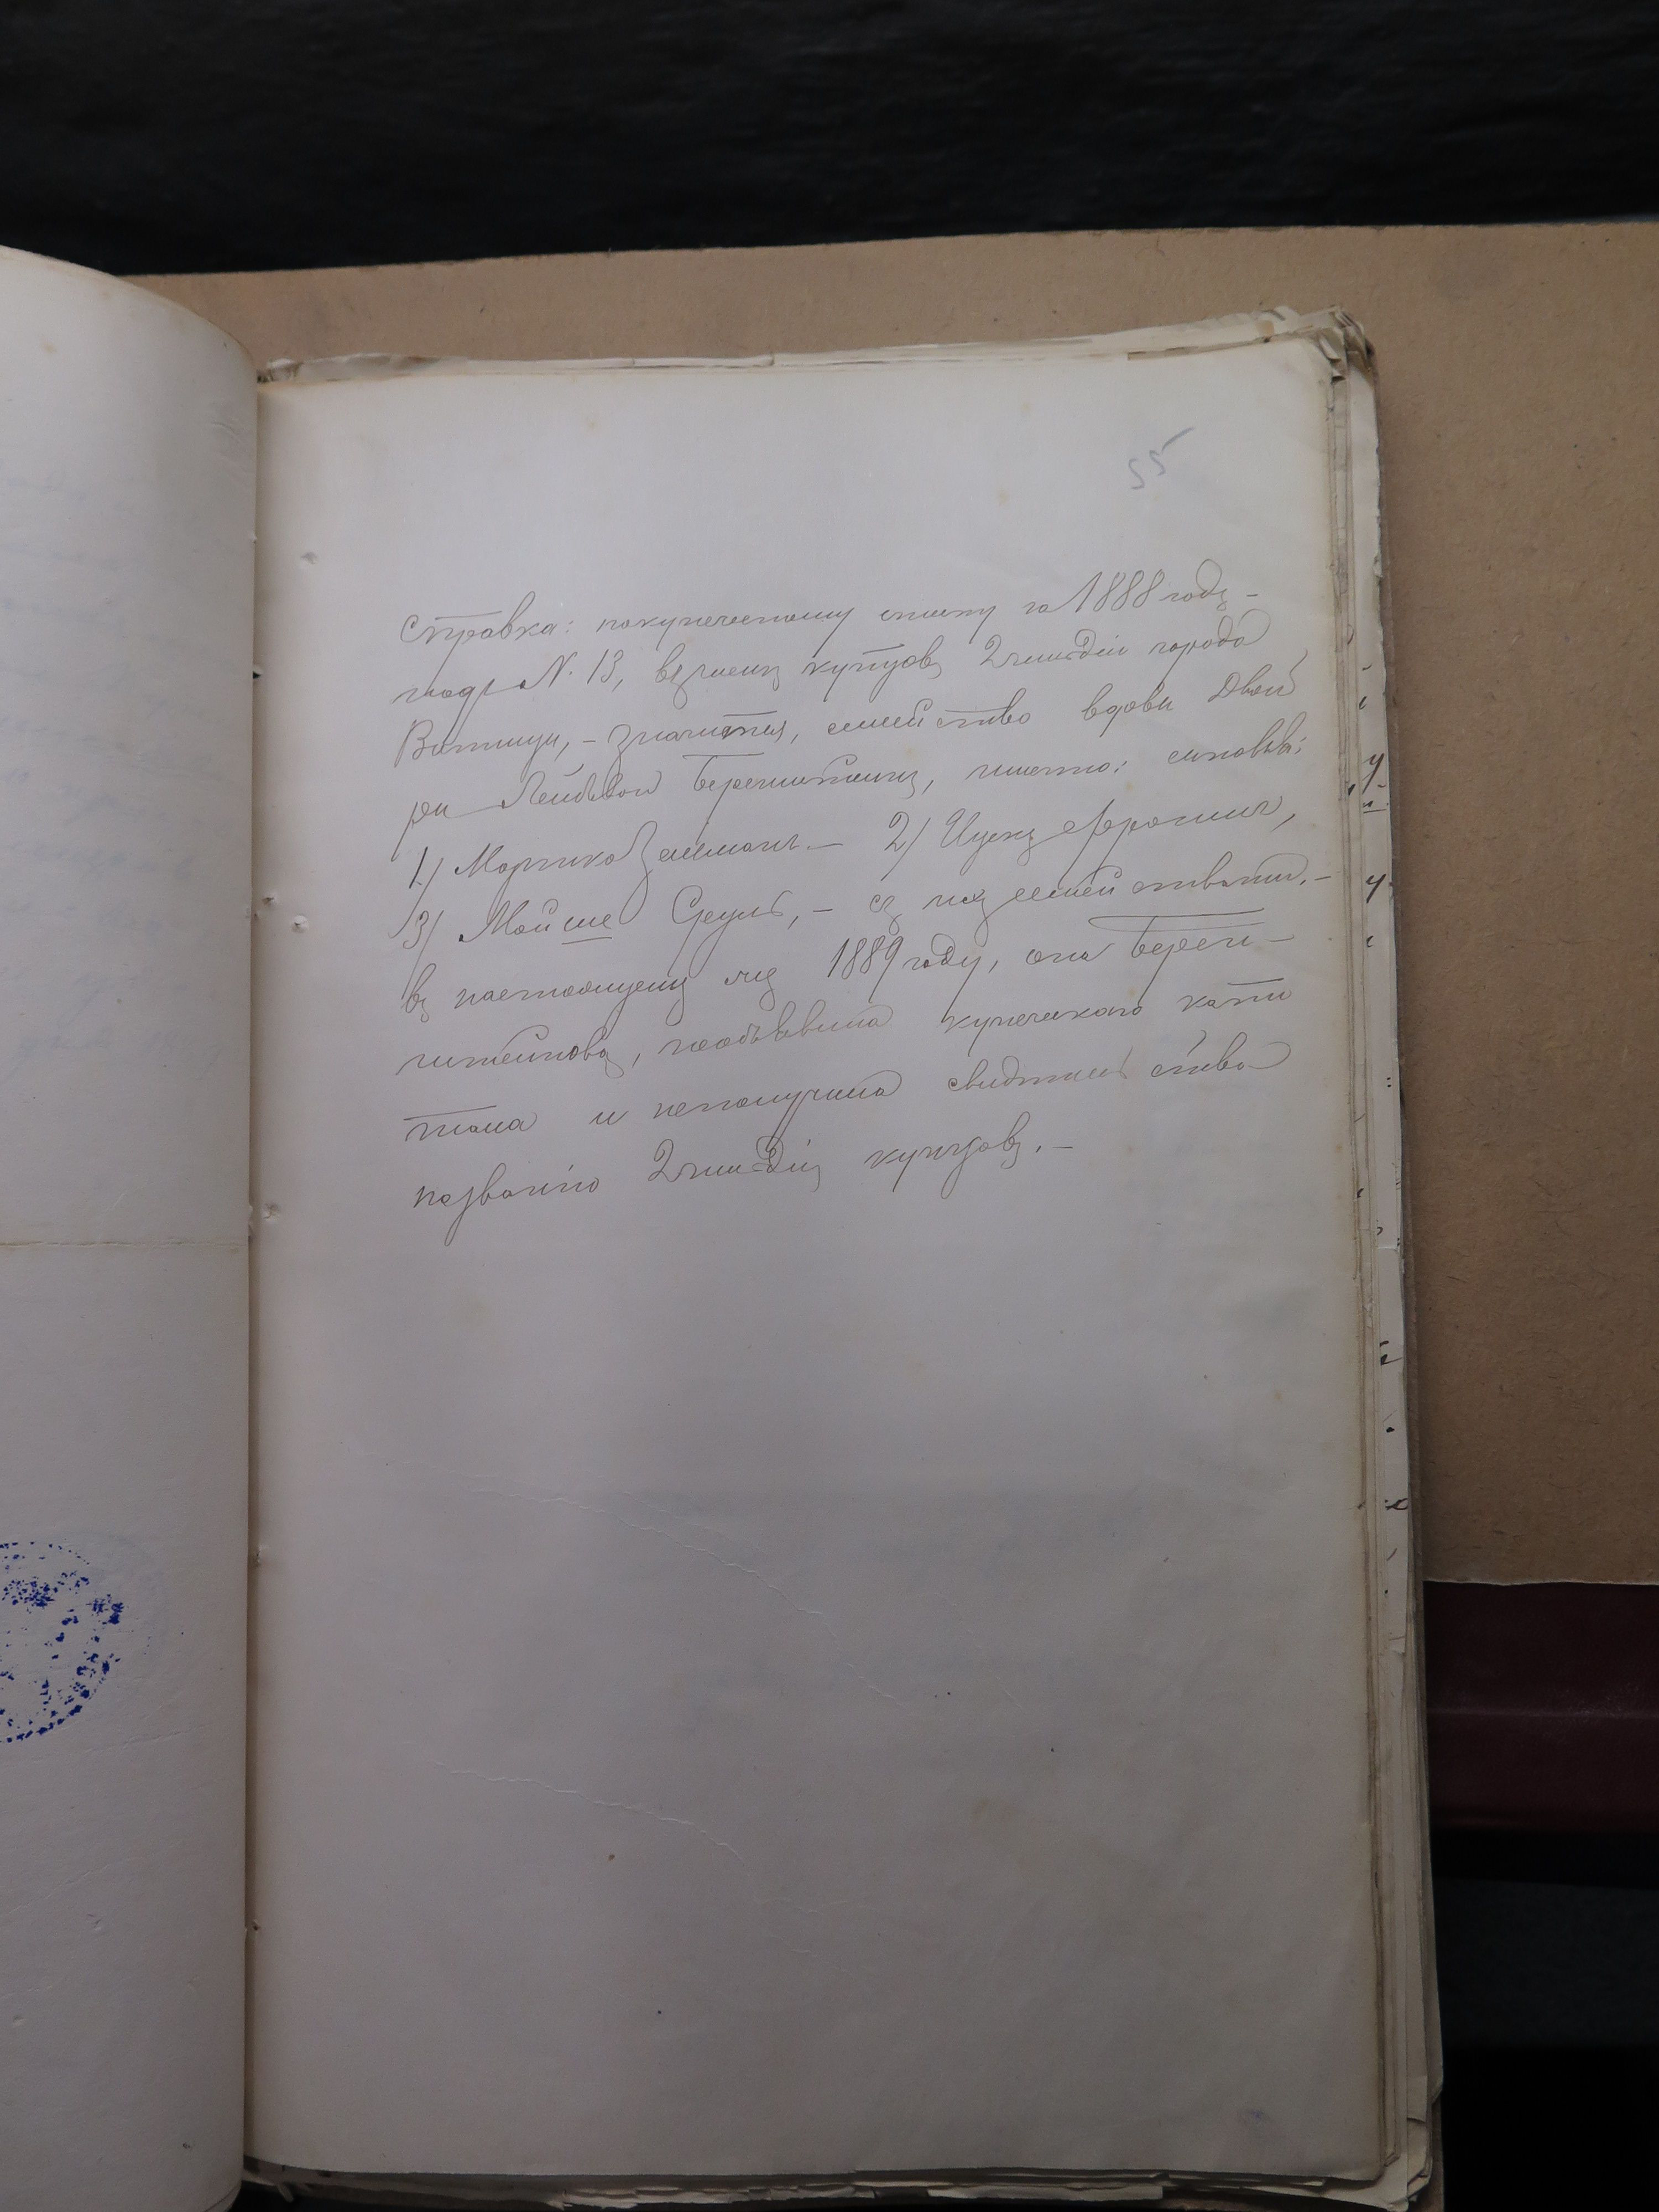 55
Справка: покупеческому списку за 1888 годъ –
подъ N. 13, въ числѣ купцовъ 2 гильдіи города
Винницы, – значится, семейство вдовы Двой
ры Лейбовой Беренштейнъ, именно: сыновья:
1.) Мортко Зельманъ. – 2) Ицекъ Фроимъ,
3) Мойше Сруль, – съ ихъ семействами. –
въ настоящемъ же 1889 году, она Берен –
штейнова, необъявила купеческого капи
тала и неполучила свидѣтельства
названію 2 гильдіи купцовъ. –